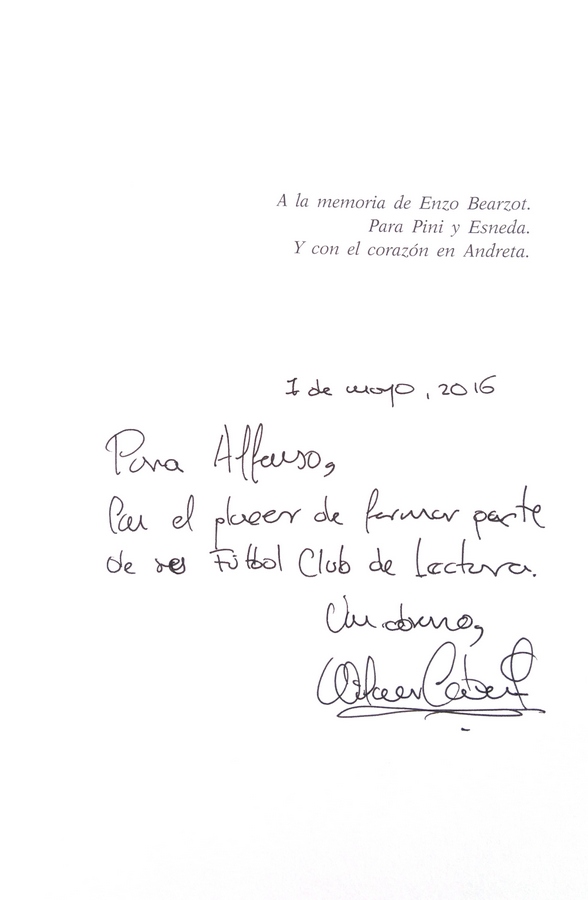 A la memoria de Enzo Bearzot.
Para Pini y Esneda.
Y con el corazón en Andreta.
1 de mayo, 2016
Para Alfonso,
Por el placer de formar parte
de Fútbol Club de Lectura.
Un abrazo,